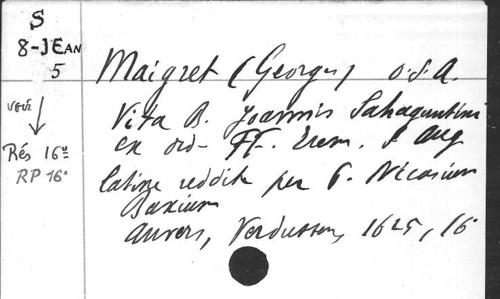 S
8-JEAN
5
Maigret (Georges) o.s.A.
Vita B. Joannis Sahaguntini
ex ord- FF. Erem. S Aug
voir
Rés 16°
RP 16°
latine reddita per P. Nicasium
Baxium
Anvers, Verdussen, 1625, 16°